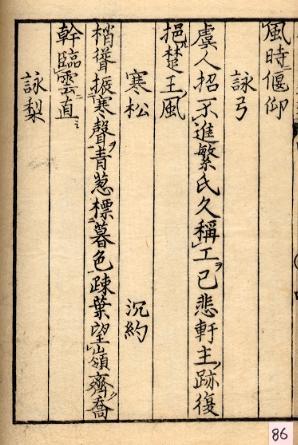 風時偃仰
詠弓
虞人招不進繁氏久稱工已悲軒主跡復
挹楚王風
寒松　沉約
梢聳振寒聲青葱標暮色疎葉望嶺齊喬
幹臨雲直
詠梨
86